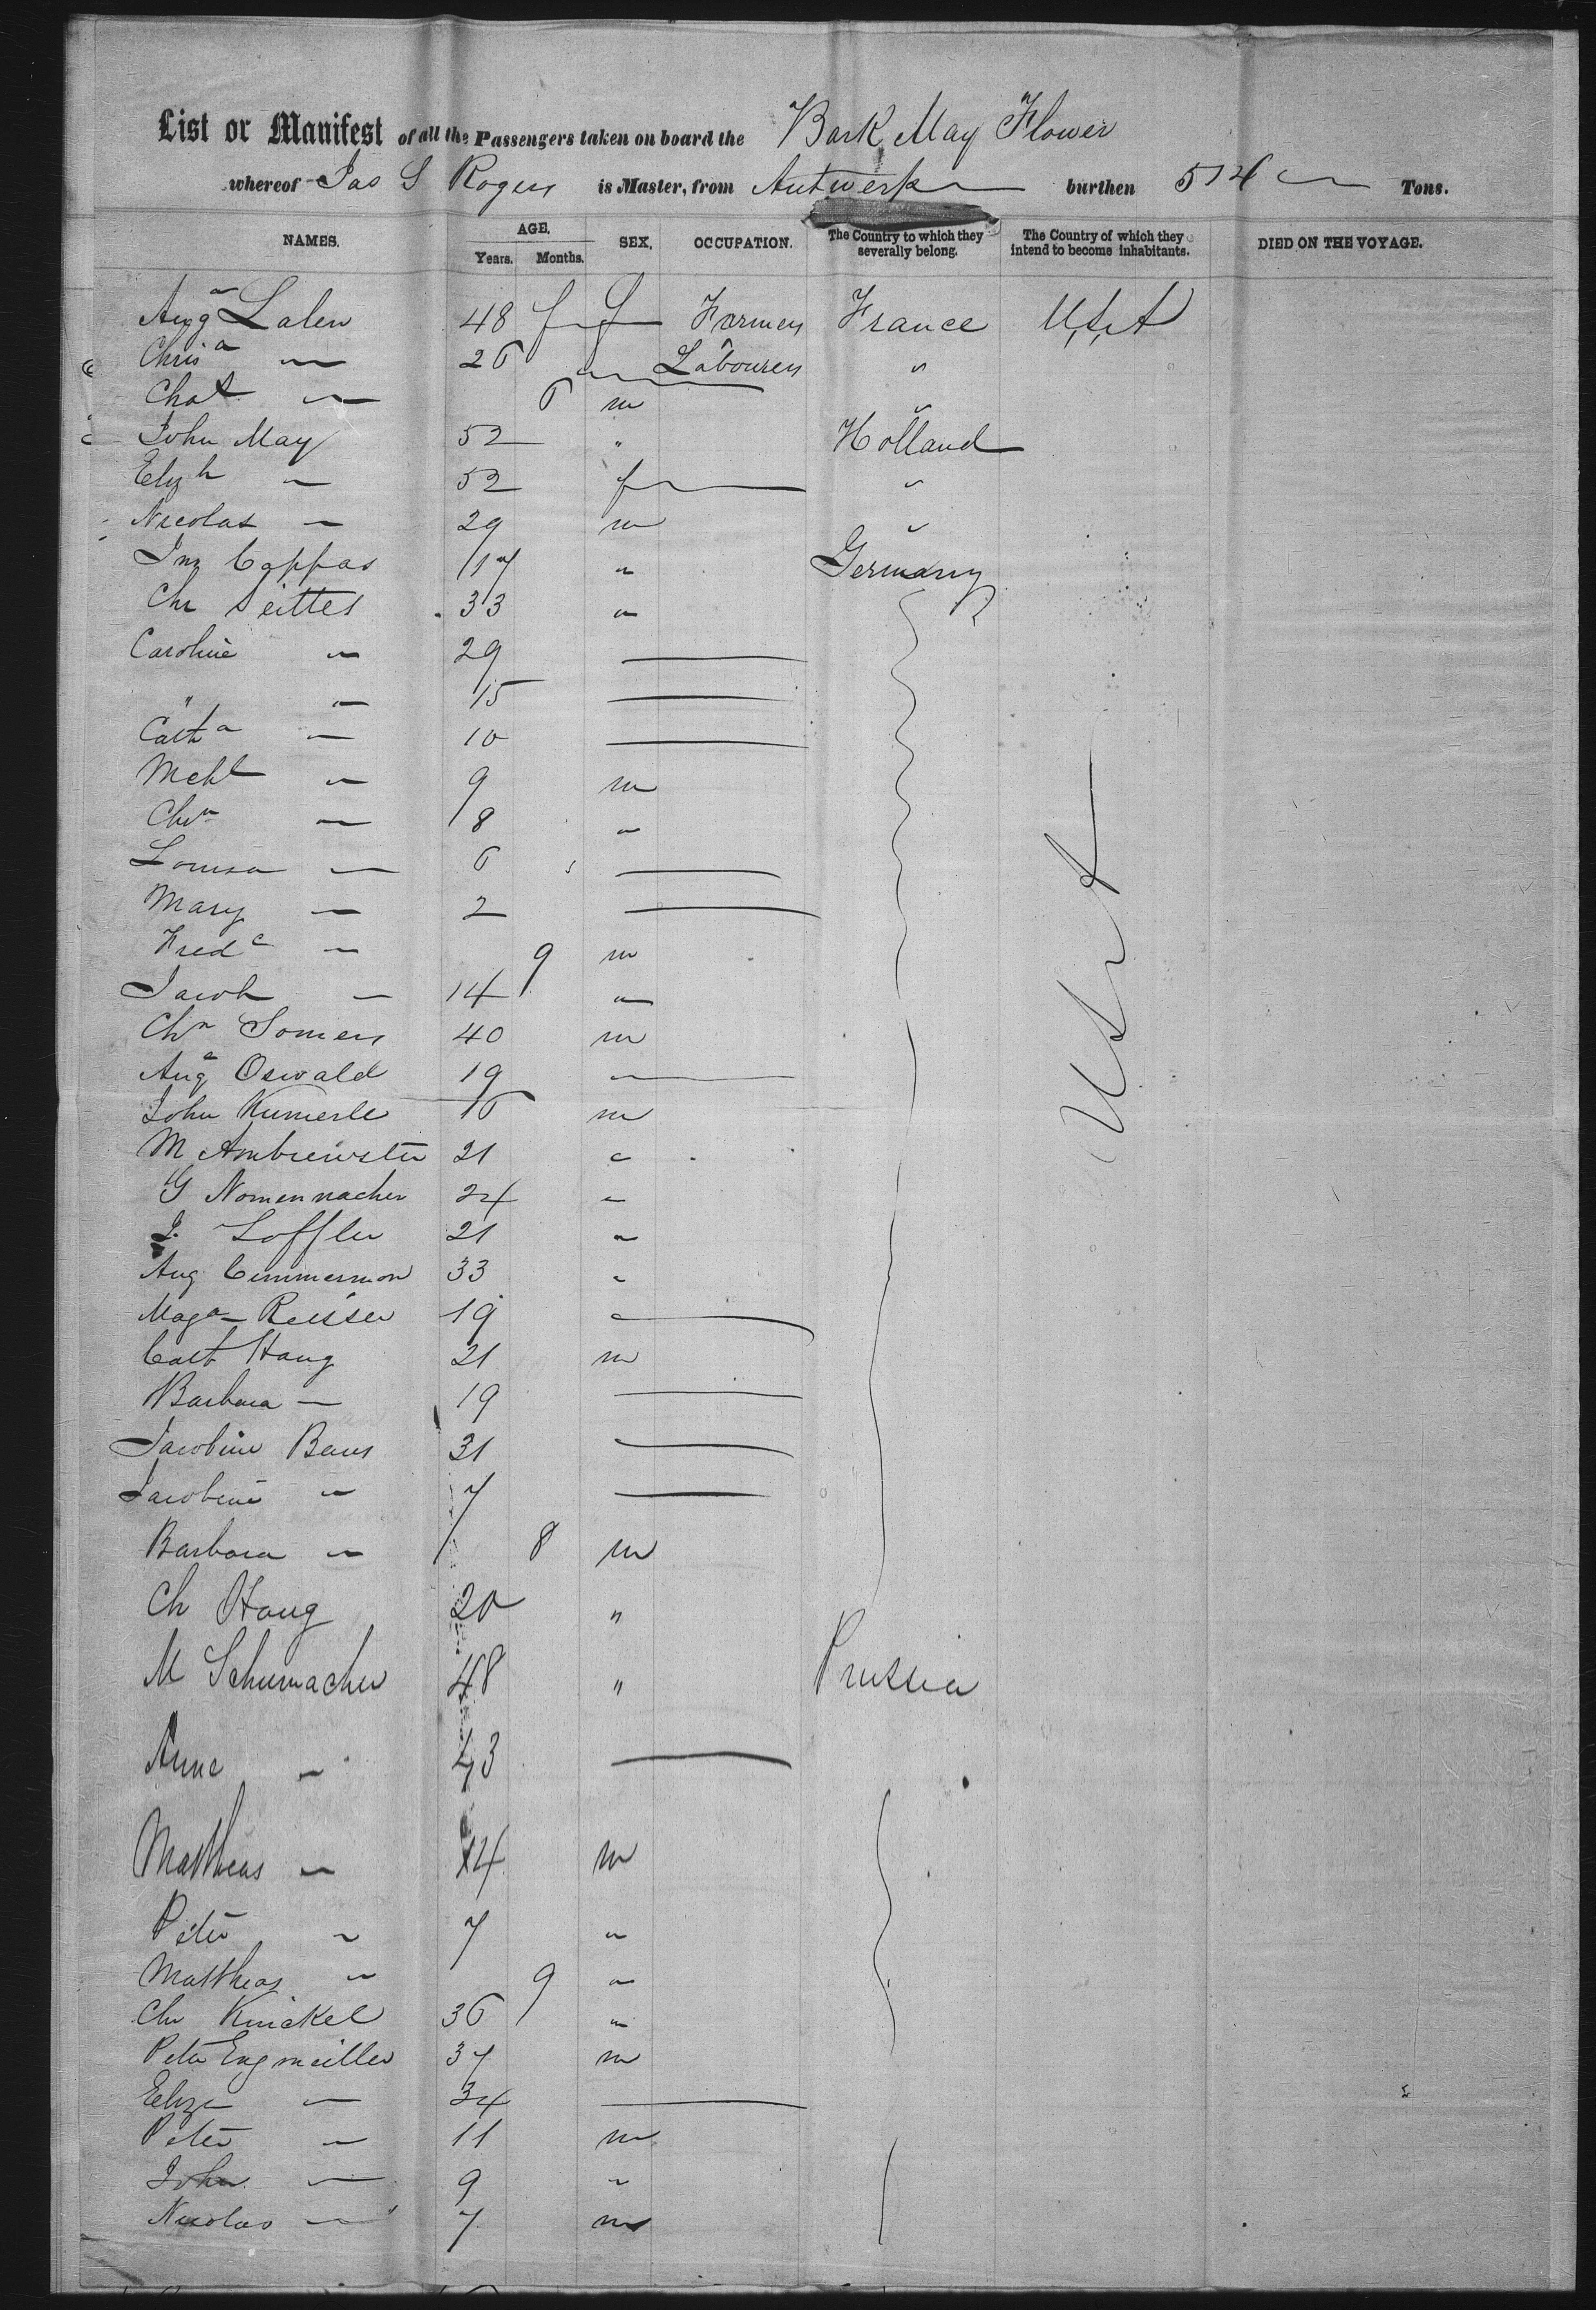 List or Manifest of all the Passengers taken on board the Bark May Flower
whereof Jas S Rogers is Master, from Antwerp burthen 514 Tons.
NAMES. AGE. Years. Months. SEX. OCCUPATION. The Country to which they severally belong. The Country of which they intend to become inhabitants. DIED ON THE VOYAGE.
Augª Lalen 48 f Farmers France U.S.A
Chrisª — 26 Labourers "
Chaˢ — 6 m "
John May 52 " Holland
Elizh — 52 f "
Nicolas — 29 m "
Jnº Cappas 17 " Germany
Chr Seittes 33 "
Caroline — 29
" — 15
Cathª — 10
Mchl — 9 m
Chrⁿ — 8 "
Louisa — 6
Mary — 2
Fredᶜ — 9 m
Jacob — 14 "
Chⁿ Somers 40 m
USA
Augª Oswald 19
John Kumerle 16 m
M Ambruster 21 "
G Nonnenmacher 24 "
J. Loffler 21 "
Aug Cimmermon 33 "
Magª Reisser 19
Haug 21 m
Barbara — 19
Jacobine Baus 31
Jacobine " 7
Barbara " 8 m
Ch Haug 20 "
M Schumacher 48 " Prussia
Anne " 43
Matthias " 14 m
Peter " 7 "
Matthias " 9 "
Chr Kunckel 36 "
Peter Engmeiller 37 m
Eliza — 34
Peter — 11 m
John — 9 "
Nicolas — 7 m